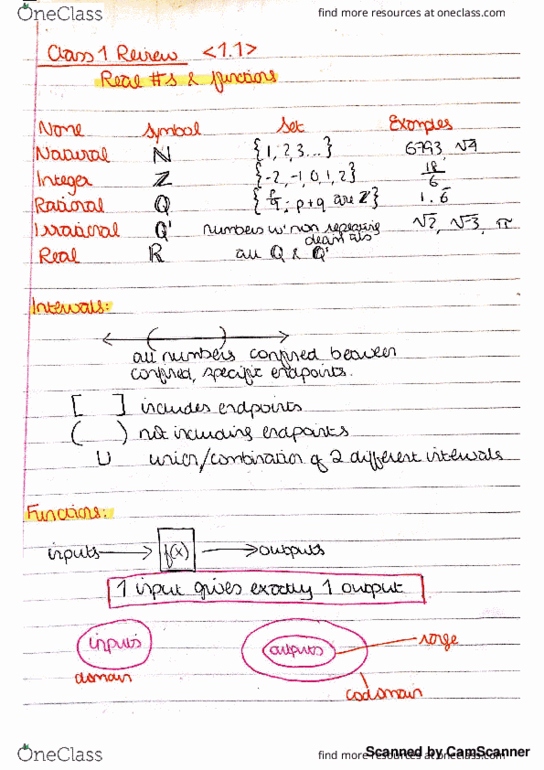 OneClass find more resources at oneclass.com
Class 1 Review <1.1>
Real #s & functions
Name Symbol Set Examples
Natural ℕ {1, 2, 3...} 6793, √4
Integer ℤ {-2, -1, 0, 1, 2} 18/6
Rational ℚ {p/q ; p+q are ℤ} 1.6
Irrational ℚ' numbers w/ non repeating decimals √2, √3, π
Real ℝ all ℚ & ℚ'
Intervals:
( )
all numbers confined between
confined, specific endpoints.
[ ] includes endpoints
( ) not including endpoints
U union/combination of 2 different intervals
Functions:
inputs → f(x) → outputs
1 input gives exactly 1 output
inputs outputs range
domain codomain
OneClass find more resources at oneclass.com
Scanned by CamScanner